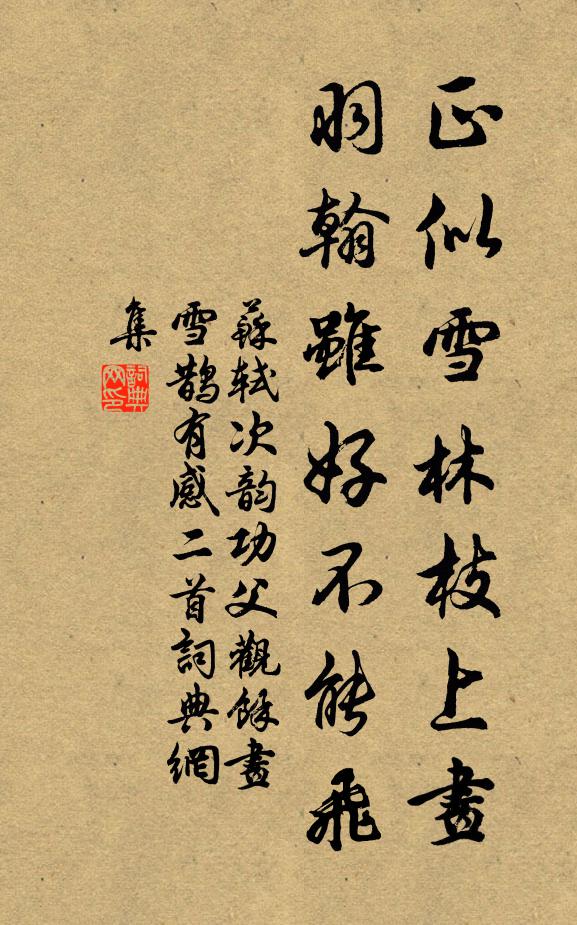 正似雪林枝上畫
羽翰雖好不能飛
蘇軾次韵功父觀餘畫
雪鵲有感二首詞典網
集
詞典
网印